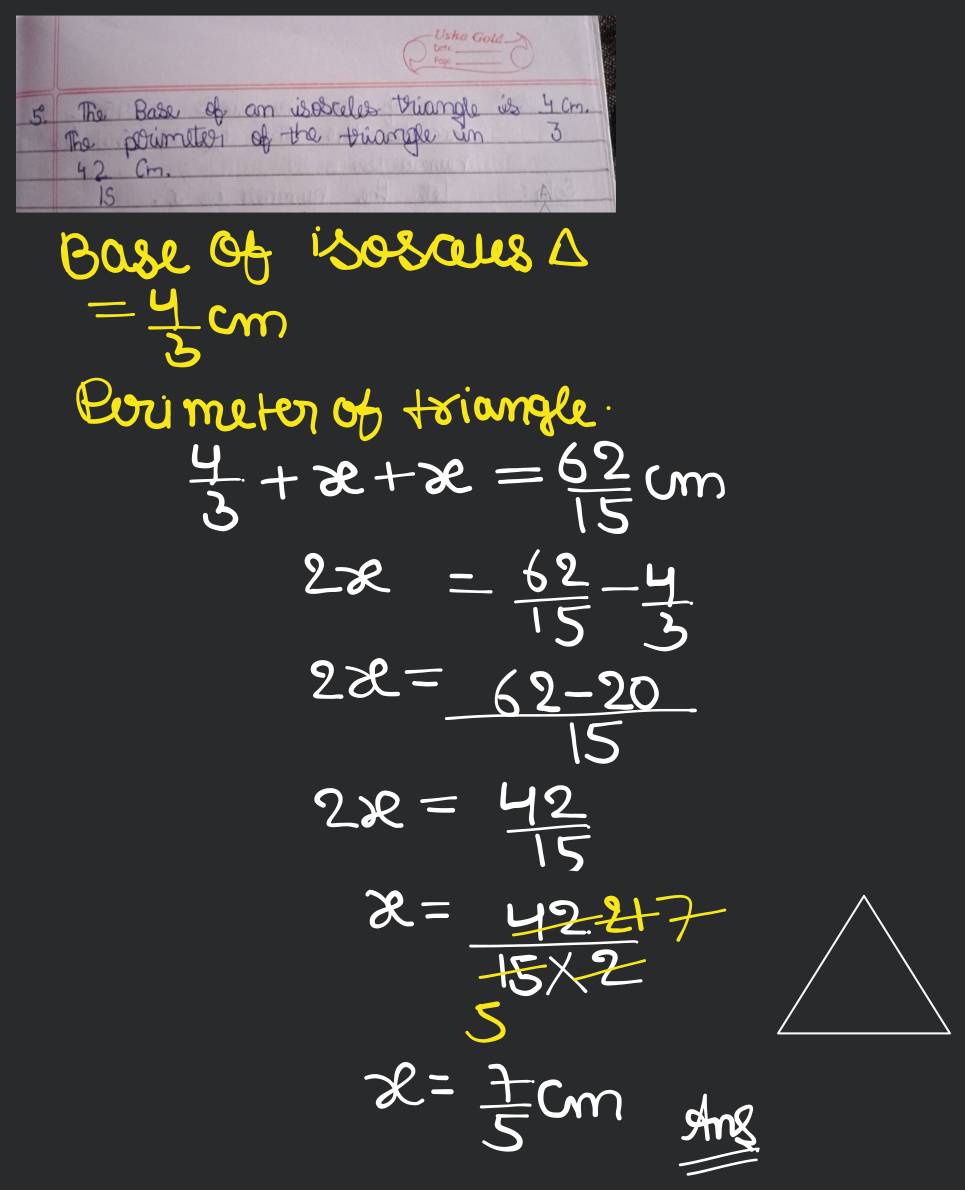 Usha Gold
Date
Page
5. The Base of an isosceles triangle is 4/3 cm.
The perimeter of the triangle in
42/15 cm.
A
Base of isosceles Δ
= 4/3 cm
Perimeter of triangle.
4/3 + x + x = 62/15 cm
2x = 62/15 - 4/3
2x = 62-20/15
2x = 42/15
x = 42 21 7/15 × 2
5
x = 7/5 cm Ans